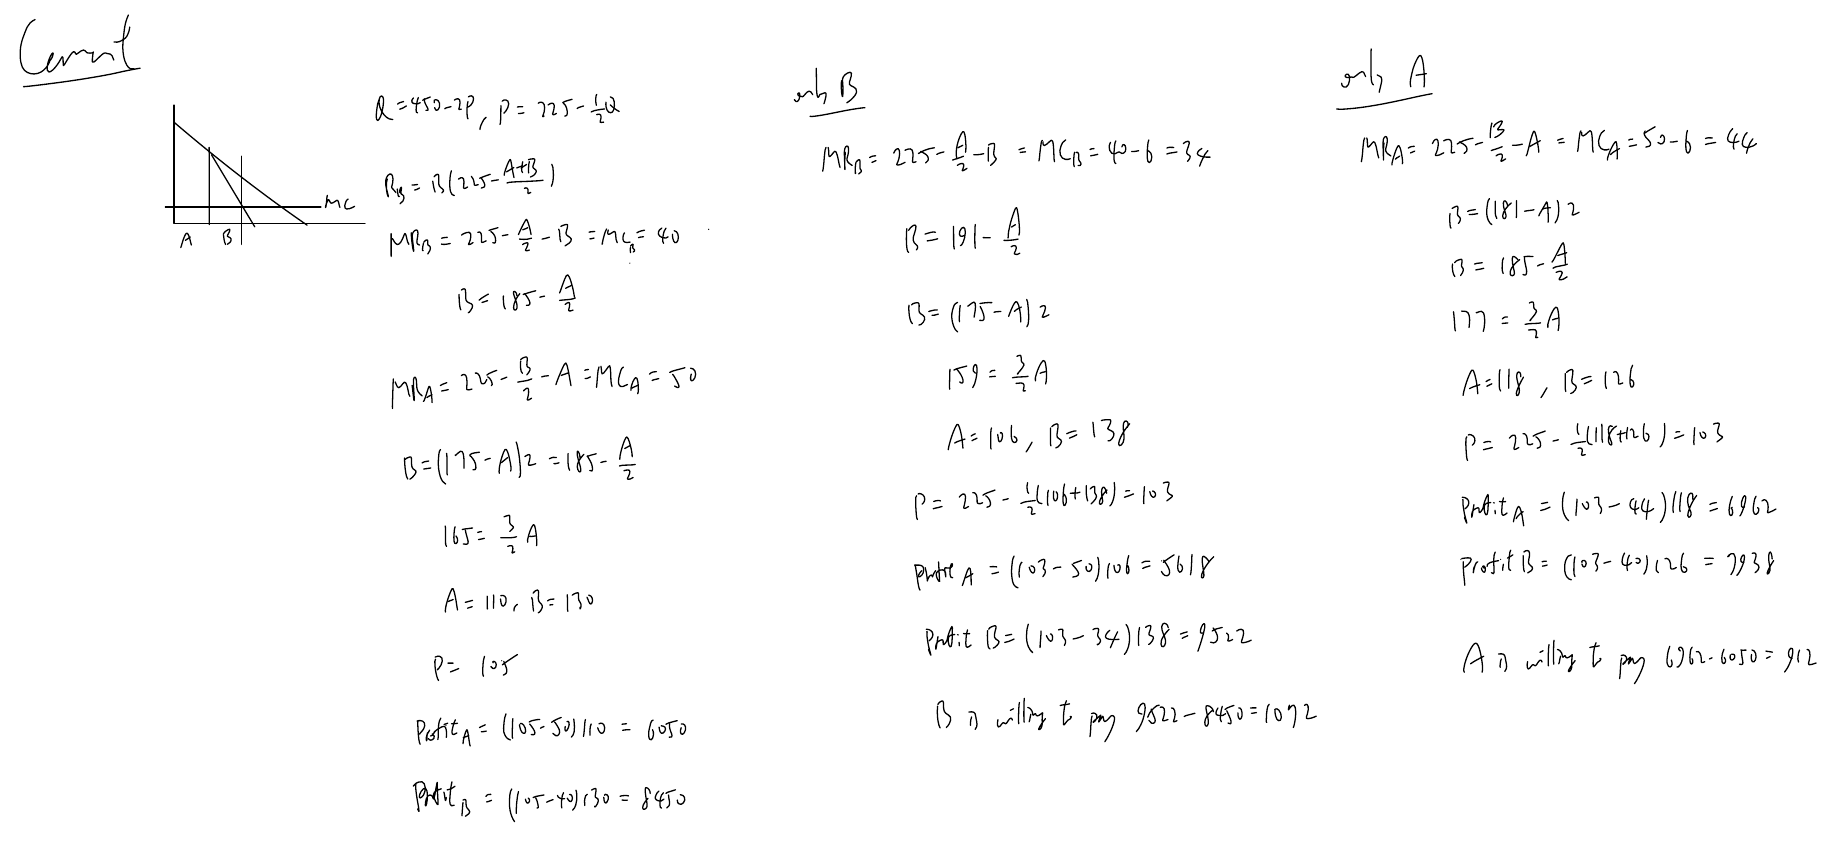 Cournot
MC
A B
Q = 450-2P, P = 225 - 1/2 Q
R_B = B(225 - (A+B)/2)
MR_B = 225 - A/2 - B = MC_B = 40
B = 185 - A/2
MR_A = 225 - B/2 - A = MC_A = 50
B = (175-A)2 = 185 - A/2
165 = 3/2 A
A = 110, B = 130
P = 105
Profit_A = (105-50)110 = 6050
Profit_B = (105-40)130 = 8450
only B
MR_B = 225 - A/2 - B = MC_B = 40-6 = 34
B = 191 - A/2
B = (175-A)2
159 = 3/2 A
A = 106, B = 138
P = 225 - 1/2(106+138) = 103
Profit A = (103-50)106 = 5618
Profit B = (103-34)138 = 9522
B is willing to pay 9522-8450=1072
only A
MR_A = 225 - B/2 - A = MC_A = 50-6 = 44
B = (181-A)2
B = 185 - A/2
177 = 3/2 A
A = 118, B = 126
P = 225 - 1/2(118+126) = 103
Profit_A = (103-44)118 = 6962
Profit B = (103-40)126 = 7938
A is willing to pay 6962-6050=912